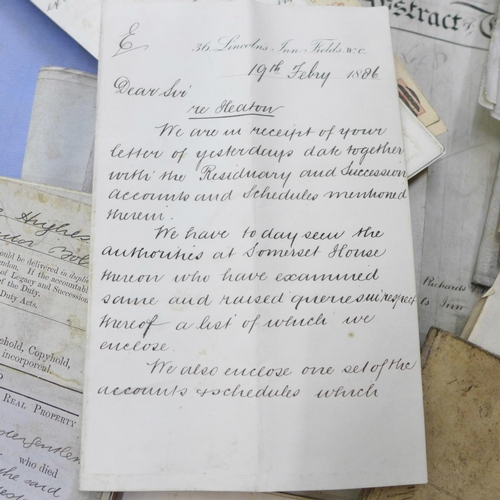 E
36, Lincolns Inn Fields, W.C.
19th Febry 1886
Dear Sir
re Heaton
We are in receipt of your
letter of yesterdays date together
with the Residuary and Succession
accounts and Schedules mentioned
therein.
We have to day seen the
authorities at Somerset House
thereon who have examined
same and raised queries in respect
thereof a list of which we
enclose.
We also enclose one set of the
accounts & schedules which
Abstract of
Hughes
ould be delivered in duplic
ndon. If the accountabl
of Legacy and Succession
of the Duty.
Duty Acts.
sehold, Copyhold,
incorporeal.
REAL PROPERTY
who died
he said
Richards
Inn